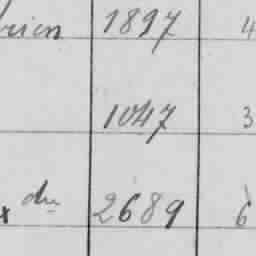 rien 1897 4
1047 3
x du 2689 6